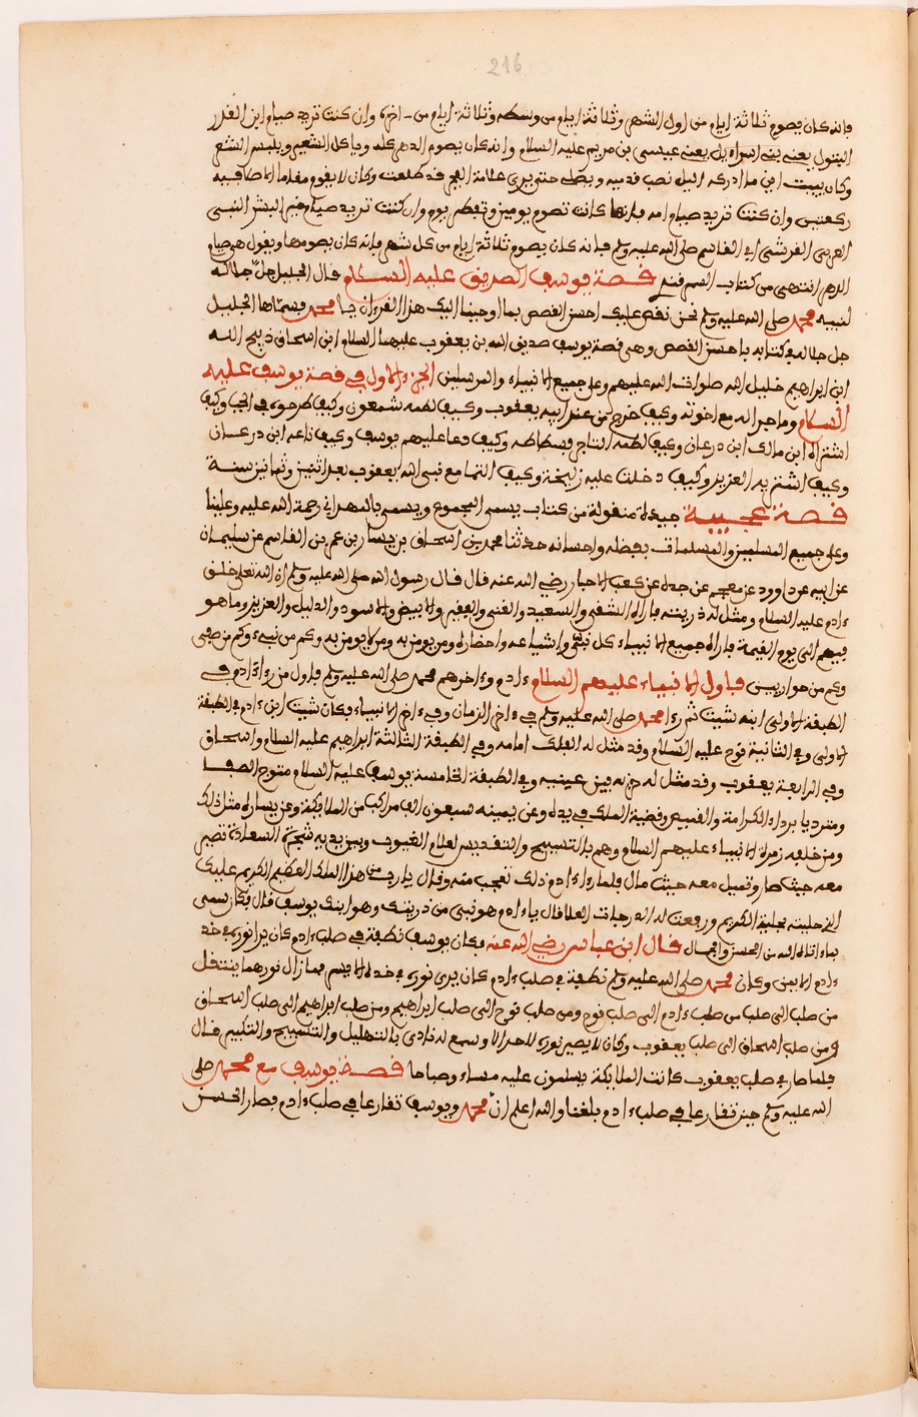 216
فانه كان يصوم ثلاثة ايام من اول الشهر وثلاثة ايام من وسطه وثلاثة ايام من اخره وان كنت تريد صيام ابن العذرا
البتول يعني بني اسراءيل يعني عيسى بن مريم عليه السلام وانه كان يصوم الدهر كله وياكل الشعير ويلبس الشعر
وكان يبيت اين ما ادركه اليل نصب قدميه ويصلي حتى يرى علامة الفجر قد طلعت وكان لا يقوم مقاما الا صلى فيه
ركعتين وان كنت تريد صيام امه فانها كانت تصوم يومين وتفطر يوم وان كنت تريد صيام خير البشر النبي
العربي القرشي ابي القاسم صلى الله عليه وسلم فانه كان يصوم ثلاثة ايام من كل شهر فانه كان يصومها ويقول هي صيام
الدهر انتهى من كتاب قصة يوسف الصديق عليه السلام قال الجليل جل جلاله
لنبيه محمد صلى الله عليه وسلم نحن نقص عليك احسن القصص بما اوحينا اليك هذا القرءان يا محمد فسماها الجليل
جل جلاله في كتابه باحسن القصص وهي قصة يوسف صديق الله بن يعقوب عليهما السلام ابن اسحاق ذبيح الله
ابن ابراهيم خليل الله صلوات الله عليهم وعلى جميع الانبياء والمرسلين الجزء الاول في قصة يوسف عليه
السلام وما جرا له مع اخوته وكيف خرج من عند ابيه يعقوب وكيف لطمه شمعون وكيف طرحوه في الجب وكيف
اشتراه ابن مالك ابن درعان وكيف لطمه وكيف دعا عليهم يوسف وكيف باعه ابن درعان
وكيف اشتريه العزيز وكيف دخلت عليه زليخة وكيف التما مع نبي الله يعقوب بعد اثنين وثمانين سنة
قصة عجيبة جيدة منقولة من كتاب يسمى المجموع ويسمى رحمة الله عليه وعلينا
وعلى جميع المسلمين والمسلمات بفضله واحسانه حدثنا محمد بن اسحاق بن يسار بن عمر بن القاسم عن سليمان
عن ابيه عن داوود عن عن جده عن كعب الاحبار رضي الله عنه قال قال رسول الله صلى الله عليه وسلم ان الله تعلى خلق
ءادم عليه السلام ومثل له ذريته فاراه الشقي والسعيد والغني والفقير والابيض والاسود والذليل والعزيز وما هو
فيهم الى يوم القيمة فاراه جميع الانبياء كل نبي واشياعه ومن يومن به ومن لا يومن به وكم من نبيء وكم من
وكم من حواريين فاول الانبياء عليهم السلام ءادم وءاخرهم محمد صلى الله عليه وسلم فاول من رءاه ءادم في
الطبقة الاولى ابنه شيت ثم رءا محمد صلى الله عليه وسلم في ءاخر الزمان وفي ءاخر الانبياء فكان شيت ابن ءادم في الطبقة
الاولى وفي الثانية نوح عليه السلام وقد مثل له الفلك امامه وفي الطبقة الثالثة ابراهيم عليه السلام واسحاق
وفي الرابعة يعقوب وقد مثل له حزنه بين عينيه وفي الطبقة الخامسة يوسف عليه السلام متوج
ومترديا برداء الكرامة والقميص وقضيب الملك في يده وعن يمينه سبعون الف مراكب من الملايكة وعن يساره مثل ذلك
ومن خلفه زمرة الانبياء عليهم السلام وهم بالتسبيح والتقديس لعلام الغيوب وبين يديه شجرة السعادة تصير
معه حيث صار وتميل معه حيث مال فلما رءا ءادم ذلك تعجب منه وقال يا رب من هذا الملك العظيم الكريم عليك
الذي حليته بحلية الكريم ورفعت له الدرجات العلا قال ياءادم هو نبي من ذريتك وهو ابنك يوسف قال
بماءاتاه الله من الحسن والجمال قال ابن عباس رضي الله عنه فكان يوسف نطفة في صلب ءادم كان يرا نوره في خد
ءادم الايمن وكان محمد صلى الله عليه وسلم نطفة في صلب ءادم كان يرى نوره في خده الايسر فما زال نورهما ينتقل
من صلب الى صلب من صلب ءادم الى صلب نوح ومن صلب نوح الى صلب ابراهيم ومن صلب ابراهيم الى صلب اسحاق
ومن صلب اسحاق الى صلب يعقوب وكان لا يصير نوره لاحد الا وسمع له نادى بالتهليل والتسبيح والتكبير قال
فلما صار في صلب يعقوب كانت الملايكة يسلمون عليه مساء وصباحا قصة يوسف مع محمد صلى
الله عليه وسلم حين تقارعا في صلب ءادم بلغنا والله اعلم ان محمد ويوسف تقارعا في صلب ءادم فصار الحسن